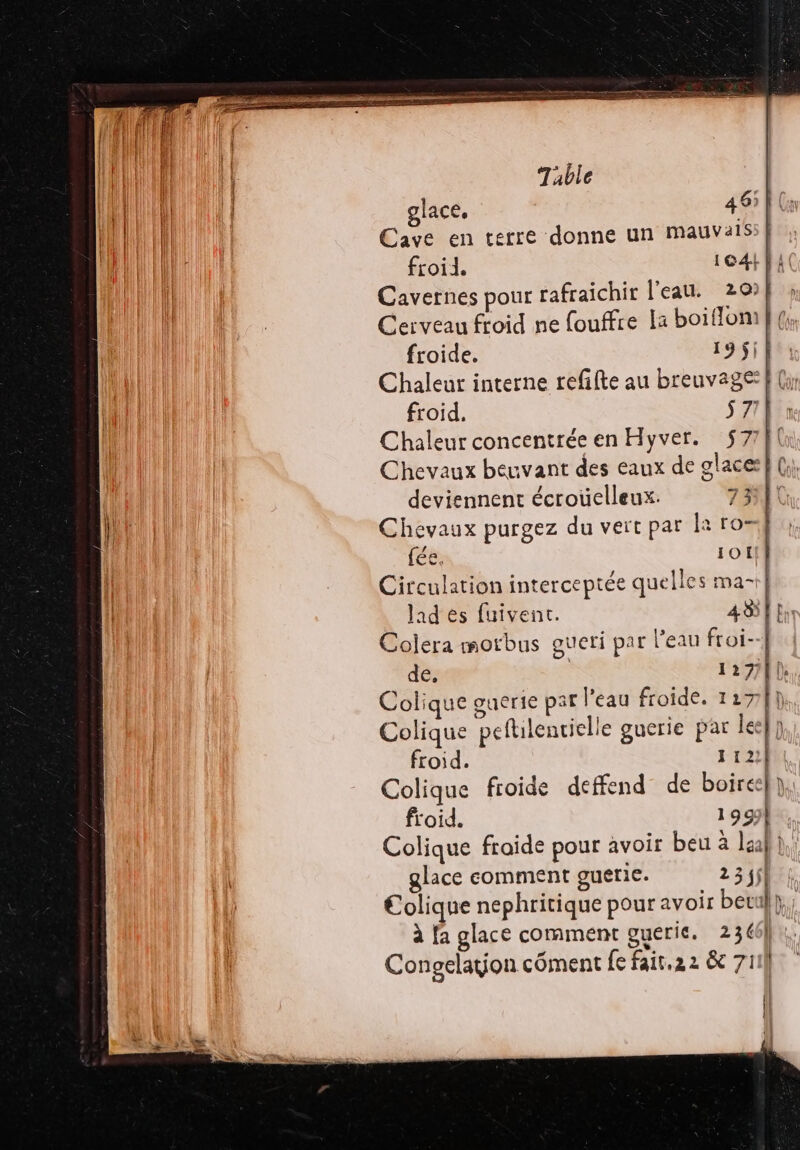 Table
glace. 46
Cave en terre donne un mauvais
froid. 104
Cavernes pour rafraichir l'eau. 20
Cerveau froid ne ſouffre la boiſſon
froide. 195
Chaleur interne reſiſte au breuvage
froid. 57
Chaleur concentrée en Hyver. 57
Chevaux beuvant des eaux de glace
deviennent écroüelleux. 73
Chevaux purgez du vert par la ro-
ſée. 101
Circulation interceptée quelles ma-
lad es ſuivent. 48
Colera morbus gueri par l'eau froi-
de. 127
Colique guerie par l'eau froide. 127
Colique peſtilentielle guerie par le
froid. 112
Colique froide deffend de boire
froid. 199
Colique froide pour avoir beu à la
glace comment guerie. 235
Colique nephritique pour avoir beu
à ſa glace comment guerie. 236
Congelation cõment ſe fait. 22 & 71